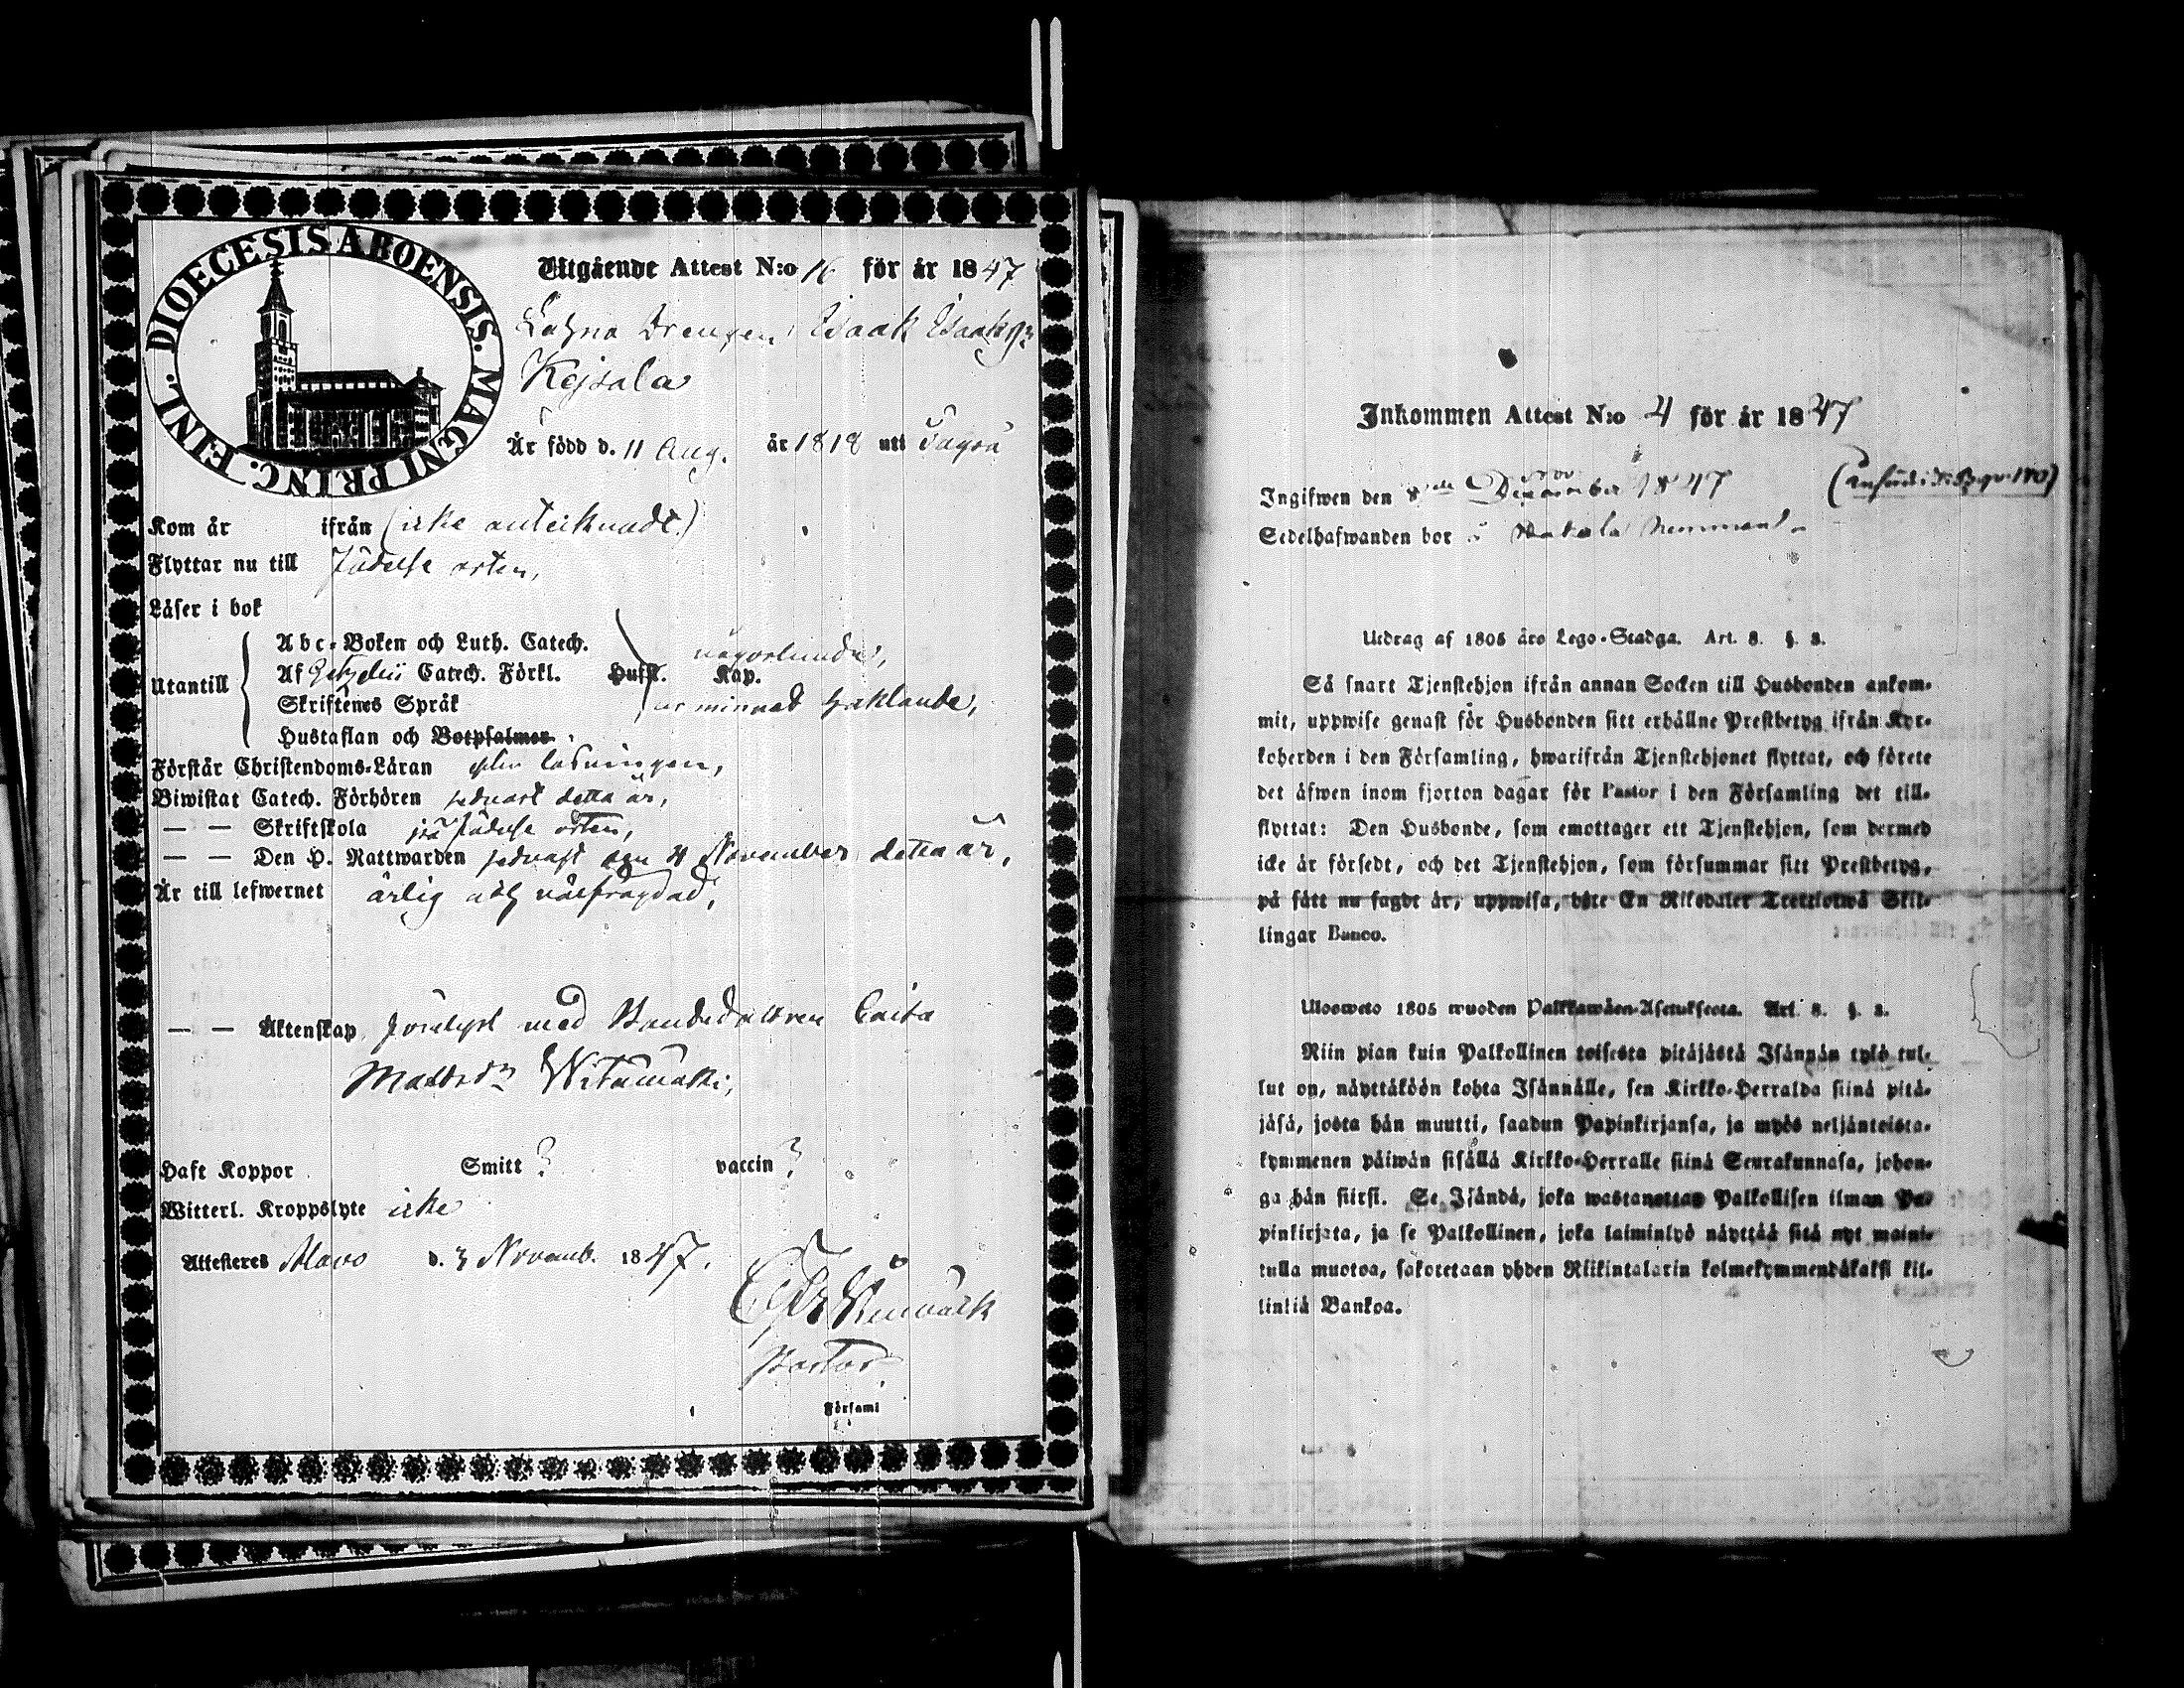 DIOECESIS ABOENSIS. MAGNI PRINC. FINL.
Utgående Attest N:o 16 för år 1847
Drengen Isaak Isaaksn
Kejsala
Är född d. 11 Aug. år 1818 uti
Kom år ifrån (icke antecknadt.)
Flyttar nu till födelse orten,
Läser i bok
Utantill
Abc-Boken och Luth. Catech. någorlunda,
Af Catech. Förkl. Hufst. Kap.
Skriftenes Språk ur minnet
Hustaflan och Botpsalmer
Förstår Christendoms-Läran efter läsningen,
Biwistat Catech. Förhören sednast detta år,
— — Skriftskola på födelse orten,
— — Den H. Nattwarden sednast den 4 November detta år,
Är till lefwernet ärlig och välfrägdad,
— — Äktenskap förelyst med Bondedottren Caisa
Mattsdr Witamäki,
Haft Koppor Smitt ? vaccin ?
Witterl. Kroppslyte icke
Attesteras Alavo d. 3 Novemb. 1847.
Pastor.
Församl
Inkommen Attest N:o 4 för år 1847
Ingifwen den 8de December 1847
Sedelhafwanden bor i
Utdrag af 1805 års Lego-Stadga. Art. 8. §. 2.
Så snart Tjenstehjon ifrån annan Socken till Husbonden ankom-
mit, uppwise genast för Husbonden sitt erhållne Prestbetyg ifrån Kyr-
koherden i den Församling, hwarifrån Tjenstehjonet flyttat, och förete
det äfwen inom fjorton dagar för Pastor i den Församling det till-
flyttat: Den Husbonde, som emottager ett Tjenstehjon, som dermed
icke är försedt, och det Tjenstehjon, som försummar sitt Prestbetyg,
på sätt nu sagdt är, uppwisa, böte En Riksdaler Trettiotwå Skil-
lingar Banco.
Ulosweto 1805 wuoden Palkkawäen-Asetuksesta. Art. 8. §. 2.
Niin pian kuin Palkollinen toisesta pitäjästä Isännän tylö tul-
lut on, näyttäköön kohta Isännälle, sen Kirkko-Herralda siinä pitä-
jäsä, josta hän muutti, saadun Papinkirjansa, ja myös neljäntoista-
kymmenen päiwän sisällä Kirkko-Herralle siinä Seurakunnasa, johon-
ga hän siirsi. Se Isändä, joka wastanottaa Palkollisen ilman Pa-
pinkirjata, ja se Palkollinen, joka laiminlyö näyttää sitä nyt maini-
tulla muotoa, sakotetaan yhden Riikintalarin kolmekymmendäkaksi kil-
lintiä Bankoa.